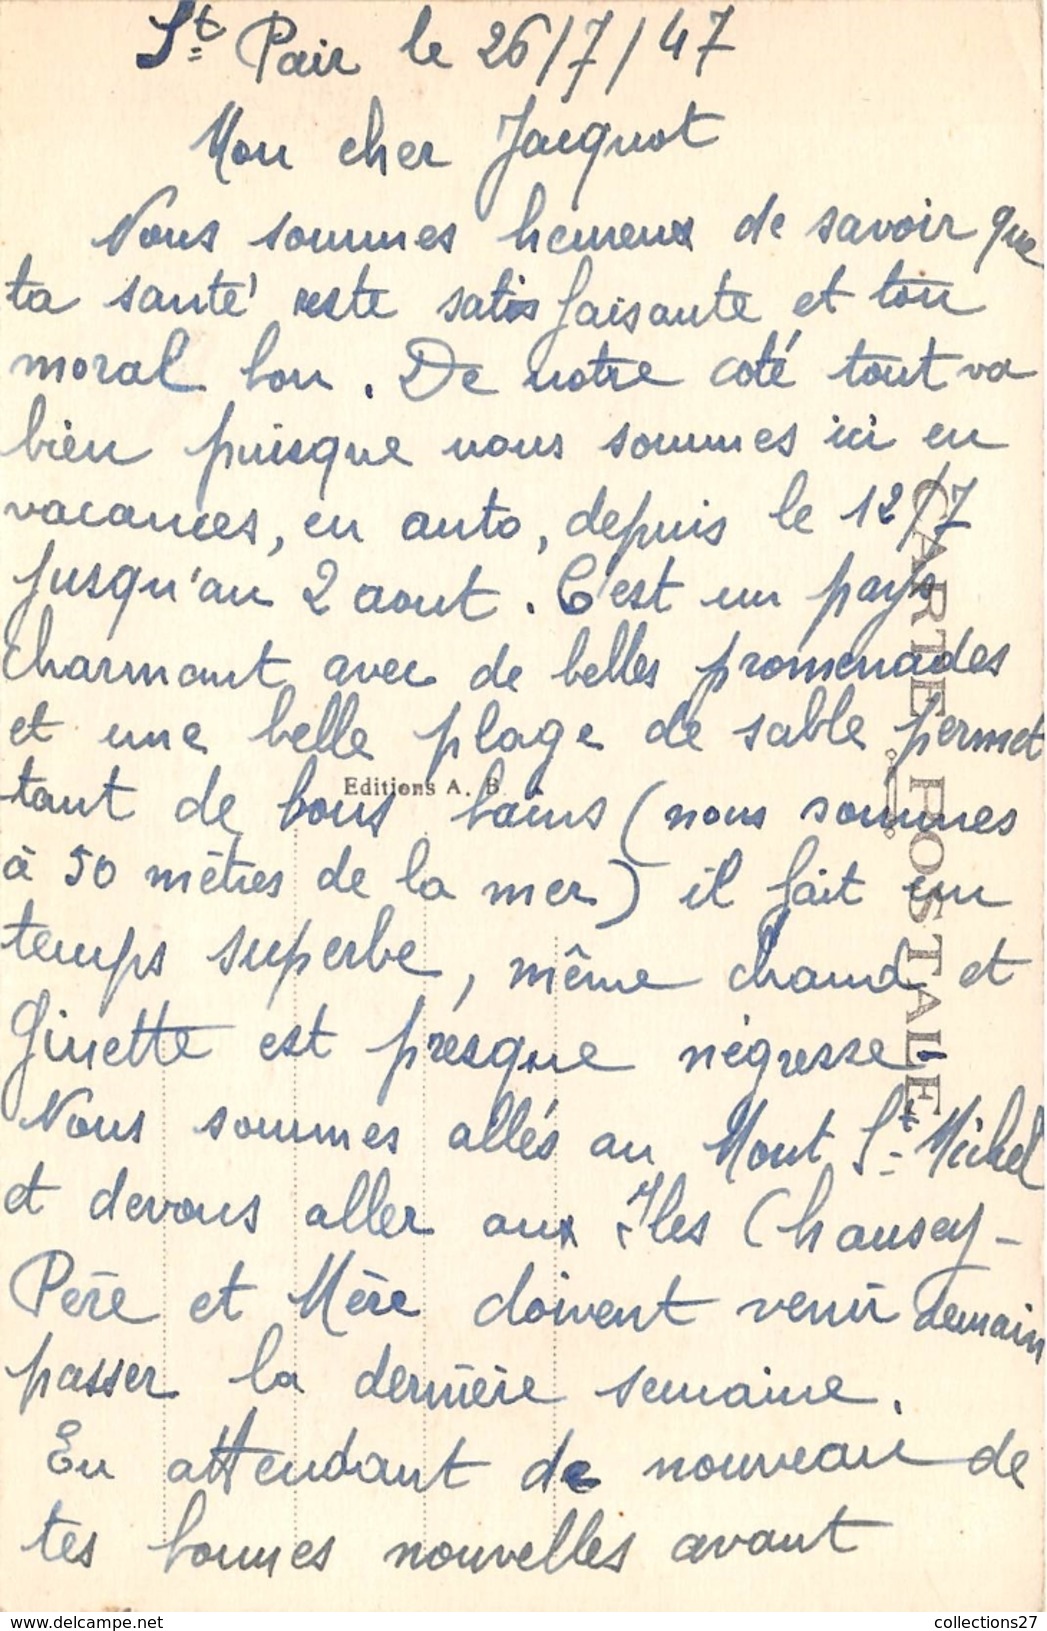 St Pair le 26/7/47
Mon cher Jacquot
Nous sommes heureux de savoir que
ta santé reste satisfaisante et ton
moral bon. De notre coté tout va
bien puisque nous sommes ici en
vacances, en auto, depuis le 12/7
jusqu'au 2 aout. C'est un pays
charmant avec de belles promenades
et une belle plage de sable permet
tant de bons bains (nous sommes
à 50 mètres de la mer) il fait un
temps superbe, même chaud et
Ginette est présque négresse.
Nous sommes allés au Mont St-Michel
et devons aller aux Iles Chausey-
Père et Mère doivent venir demain
passer la dernière semaine.
En attendant de nouveau de
tes bonnes nouvelles avant
CARTE POSTALE
Editions A. B.
collections27